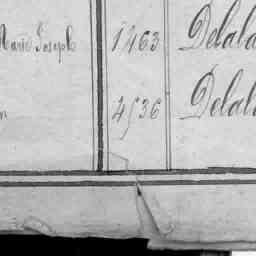 Marie Joseph 1463 Delala
4536 Delal